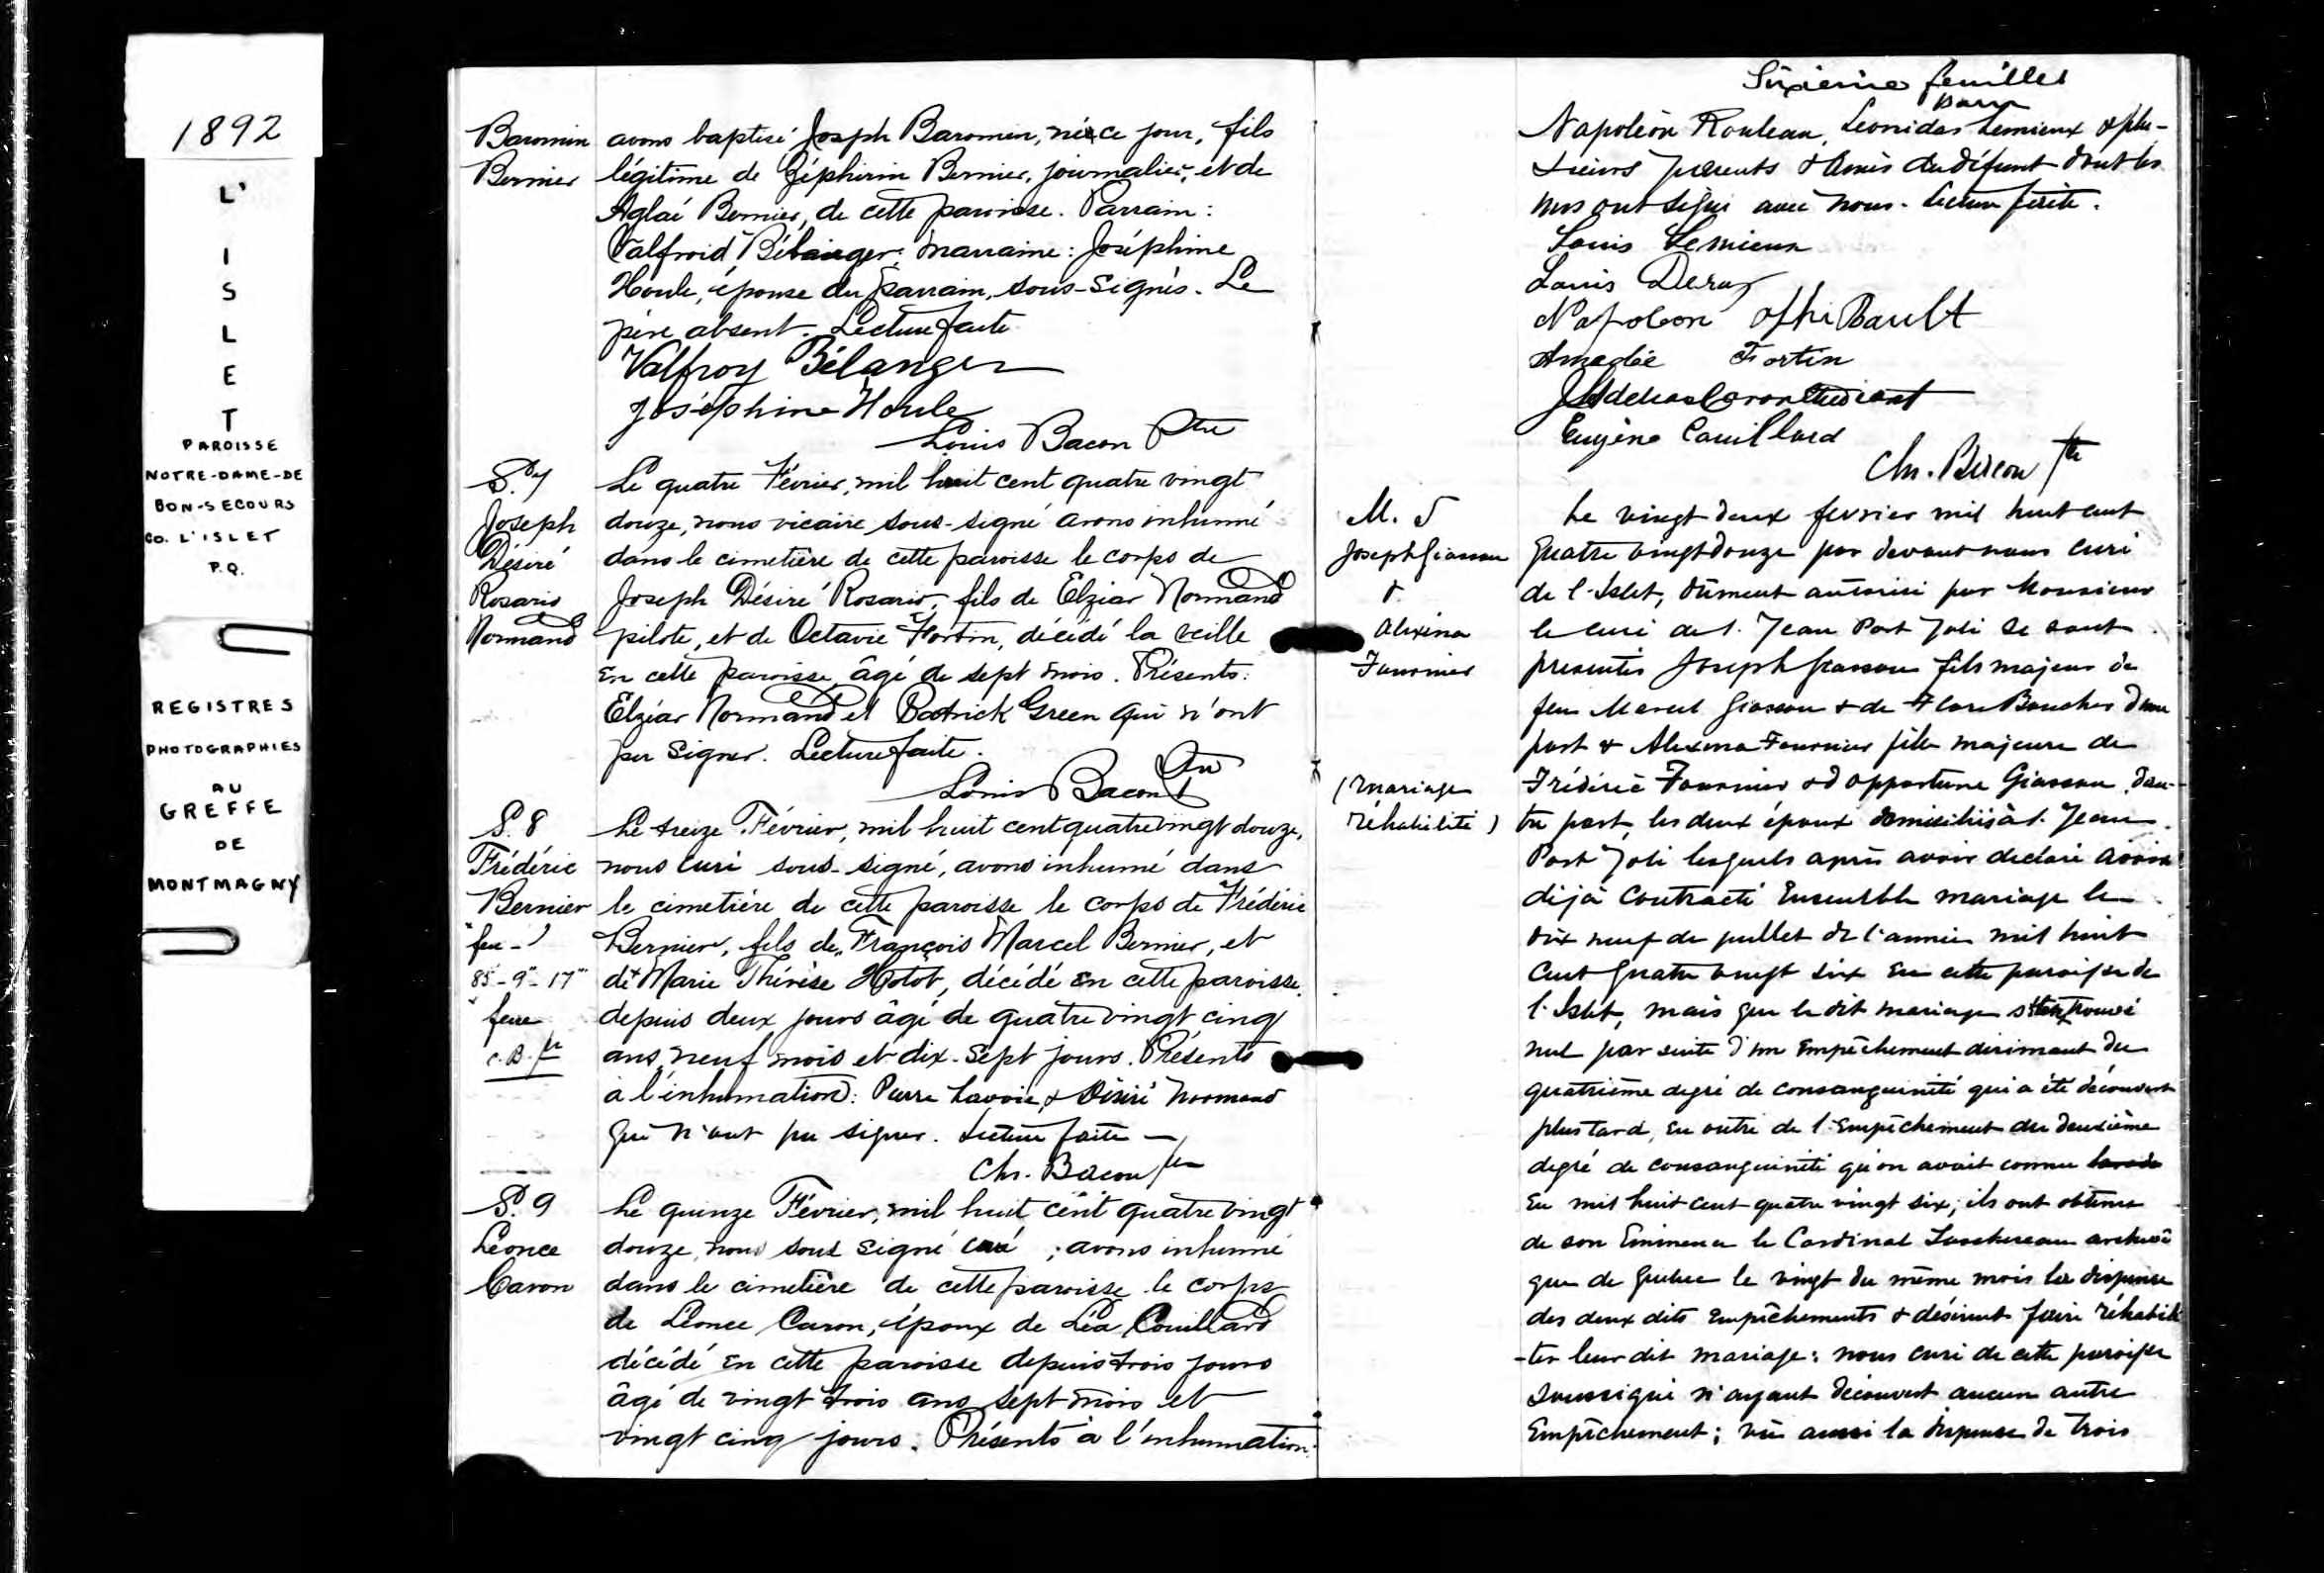 1892
L'
I
S
L
E
T
PAROISSE
NOTRE-DAME-DE
BON-SECOURS
CO. L'ISLET
P.Q.
REGISTRES
PHOTOGRAPHIES
AU
GREFFE
DE
MONTMAGNY
Baromin
Bernier
avons baptisé Joseph Baromin, né ce jour, fils
légitime de Zéphirin Bernier, journalier, et de
Aglaé Bernier, de cette paroisse. Parrain:
Valfroid Bélanger; marraine: Joséphine
Houle, épouse du parrain, sous-signés. Le
père absent. Lecture faite.
Valfroy Bélanger
Joséphine Houle
Louis Bacon Ptre
S. 7
Joseph
Désiré
Rosario
Normand
Le quatre Février, mil huit cent quatre vingt
douze, nous vicaire sous-signé avons inhumé
dans le cimetière de cette paroisse le corps de
Joseph Désiré Rosario, fils de Elzéar Normand
pilote, et de Octavie Fortin, décédé la veille
en cette paroisse âgé de sept mois. Présents:
Elzéar Normand et Patrick Green qui n'ont
pu signer. Lecture faite.
Louis Bacon Ptre
S. 8
Frédéric
Bernier
"feu-"
85-9"-17"
feue
C.B. ptr
Le treize Février, mil huit cent quatre vingt douze,
nous curé sous-signé, avons inhumé dans
le cimetière de cette paroisse le corps de Frédéric
Bernier, fils de François Marcel Bernier, et
de Marie Thérèse , décédé en cette paroisse
depuis deux jours âgé de quatre vingt cinq
ans, neuf mois et dix-sept jours. Présents
à l'inhumation: Pierre Lavoie & Désiré Normand
qui n'ont pu signer. Lecture faite —
Chs. Bacon ptr
S. 9
Léonce
Caron
Le quinze Février, mil huit cent quatre vingt
douze, nous sous signé curé ; avons inhumé
dans le cimetière de cette paroisse le corps
de Léonce Caron, époux de Léa Couillard
décédé en cette paroisse depuis trois jours
âgé de vingt trois ans sept mois et
vingt cinq jours. Présents à l'inhumation:
Sixième feuillet
Napoléon Rouleau, Leonidas Lemieux & plu-
sieurs parents & amis du défunt dont les
uns ont signé avec nous. Lecture faite.
Louis Lemieux
Louis
Napoleon Thibault
Amédée Fortin
Caron Etudiant
Eugène Couillard
Chs. Bacon ptr
M. 5
Joseph Giasson
&
Alexina
Fournier
(Mariage
réhabilité)
Le vingt deux fevrier mil huit cent
quatre vingt douze par devant nous curé
de l'Islet, dûment autorisé par Monsieur
le curé de S. Jean Port Joli se sont
presentés Joseph Giasson fils majeur de
feu Marcel Giasson & de Flore Boucher d'une
part & Alexina Fournier fille majeure de
Frédéric Fournier & d'opportune Giasson, d'au-
tre part, les deux époux domiciliés à S. Jean
Port Joli lesquels après avoir declaré avoir
déjà contracté ensemble mariage le
dix neuf de juillet de l'année mil huit
cent quatre vingt six en cette paroisse de
l'Islet, mais que le dit mariage s'était trouvé
nul par suite d'un empêchement dirimant du
quatrième degré de consanguinité qui a été découvert
plus tard, en outre de l'empêchement du deuxième
degré de consanguinité qu'on avait connu
en mil huit cent quatre vingt six; ils ont obtenu
de son Eminence le Cardinal Taschereau archevê
que de Quebec le vingt du même mois la dispense
des deux dits empêchements & désirent faire réhabili
-ter leur dit mariage: nous curé de cette paroisse
soussigné n'ayant découvert aucun autre
empêchement; vû aussi la dispense de trois